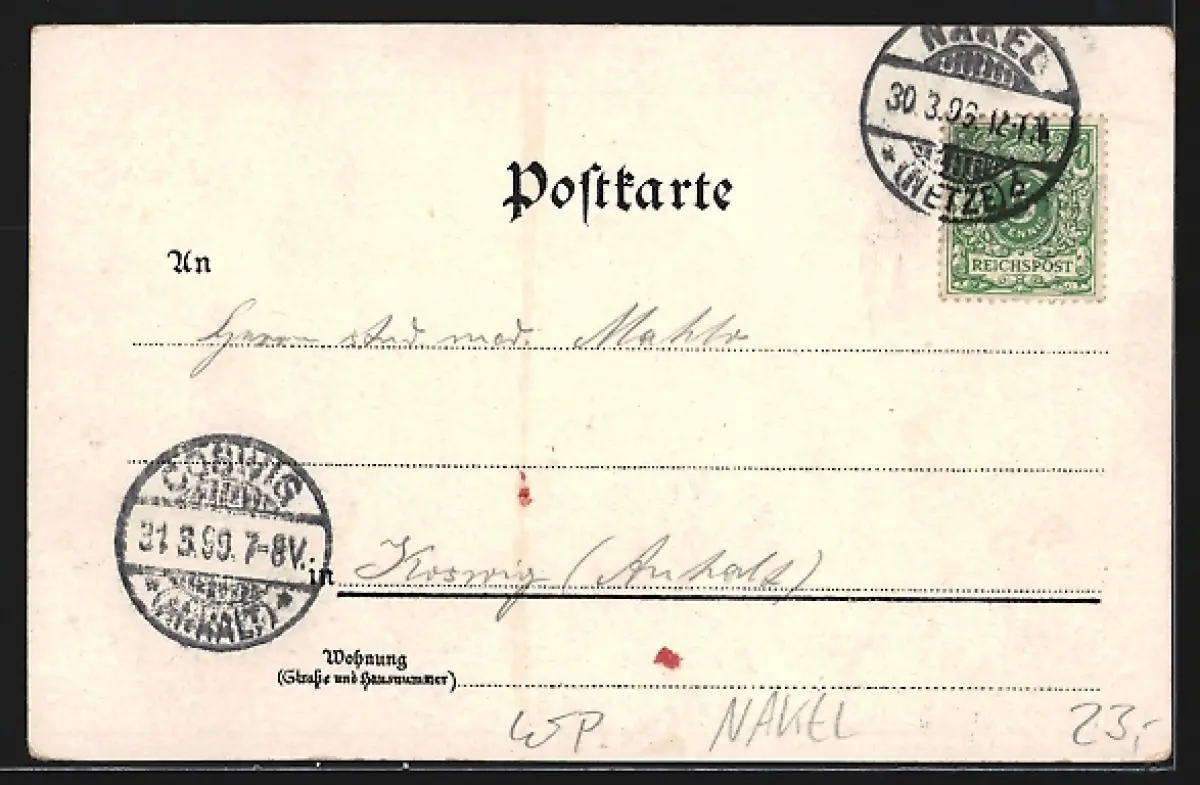 NAKEL
30.3.99. 12-1N.
* (NETZE) b
PFENNIG
REICHSPOST
Poſtkarte
An
Herrn stud. med.
COSWIG
31.3.99. 7-8V.
* (ANHALT) *
in Koswig (Anhalt)
Wohnung
(Straße und Hausnummer)
WP. NAKEL 23,-